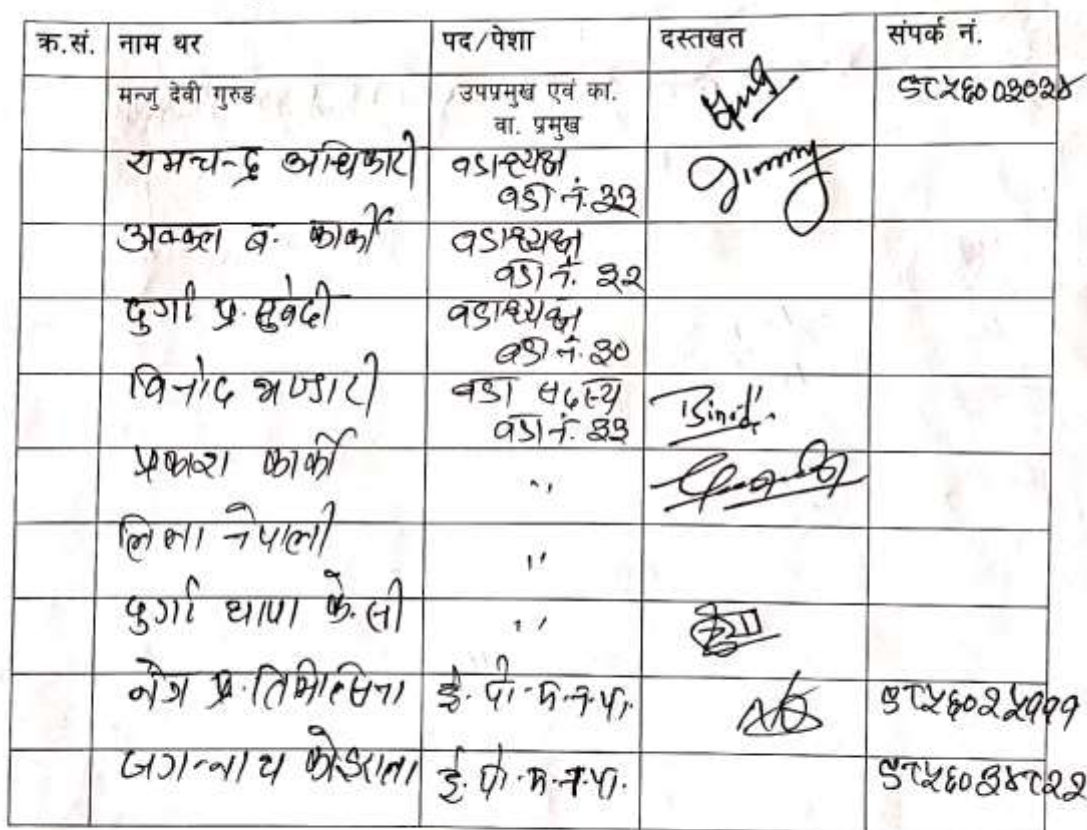 क्र.सं. नाम थर पद/पेशा दस्तखत संपर्क नं.
मन्जु देवी गुरुङ उपप्रमुख एवं का. ९८५६००२०२४
वा. प्रमुख
रामचन्द्र अधिकारी वडाध्यक्ष Jimmy
वडा नं. ३३
अक्कल ब. कार्की वडाध्यक्ष
वडा नं. ३२
दुर्गा प्र. सुवेदी वडाध्यक्ष
वडा नं. ३०
बिनोद भण्डारी वडा सदस्य Binod
वडा नं. ३३
प्रकाश कार्की "
लिला नेपाली "
दुर्गा थापा के.सी "
नेत्र प्र. तिमिल्सिना ई. पो.म.न.पा. ९८५६०२५१११
जगन्नाथ कोइराला ई. पो.म.न.पा. ९८५६०३४८२२